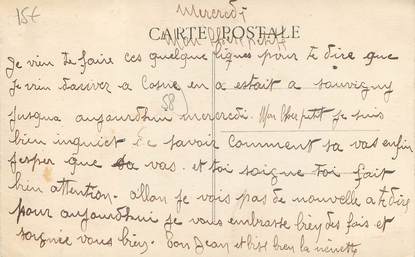 15€
Mercredi
CARTE POSTALE
Mon Cher petit
Je vien te faire ces quelque lignes pour te dire que
je vien d'arivez a Cosne en a estait a sauvigny
(58)
jusqua aujourdhui mercredi. Mon Cher petit je suis
bien inquiet de savoir Comment ta vas enfin
j'esper que sa vas. et toi soigne toi fait
bien attention. allon je vois pas de nouvelle a te dire
pour aujourdhui je vous embrasse bien des fois et
soignée vous bien. Ton Jean et bise bien la